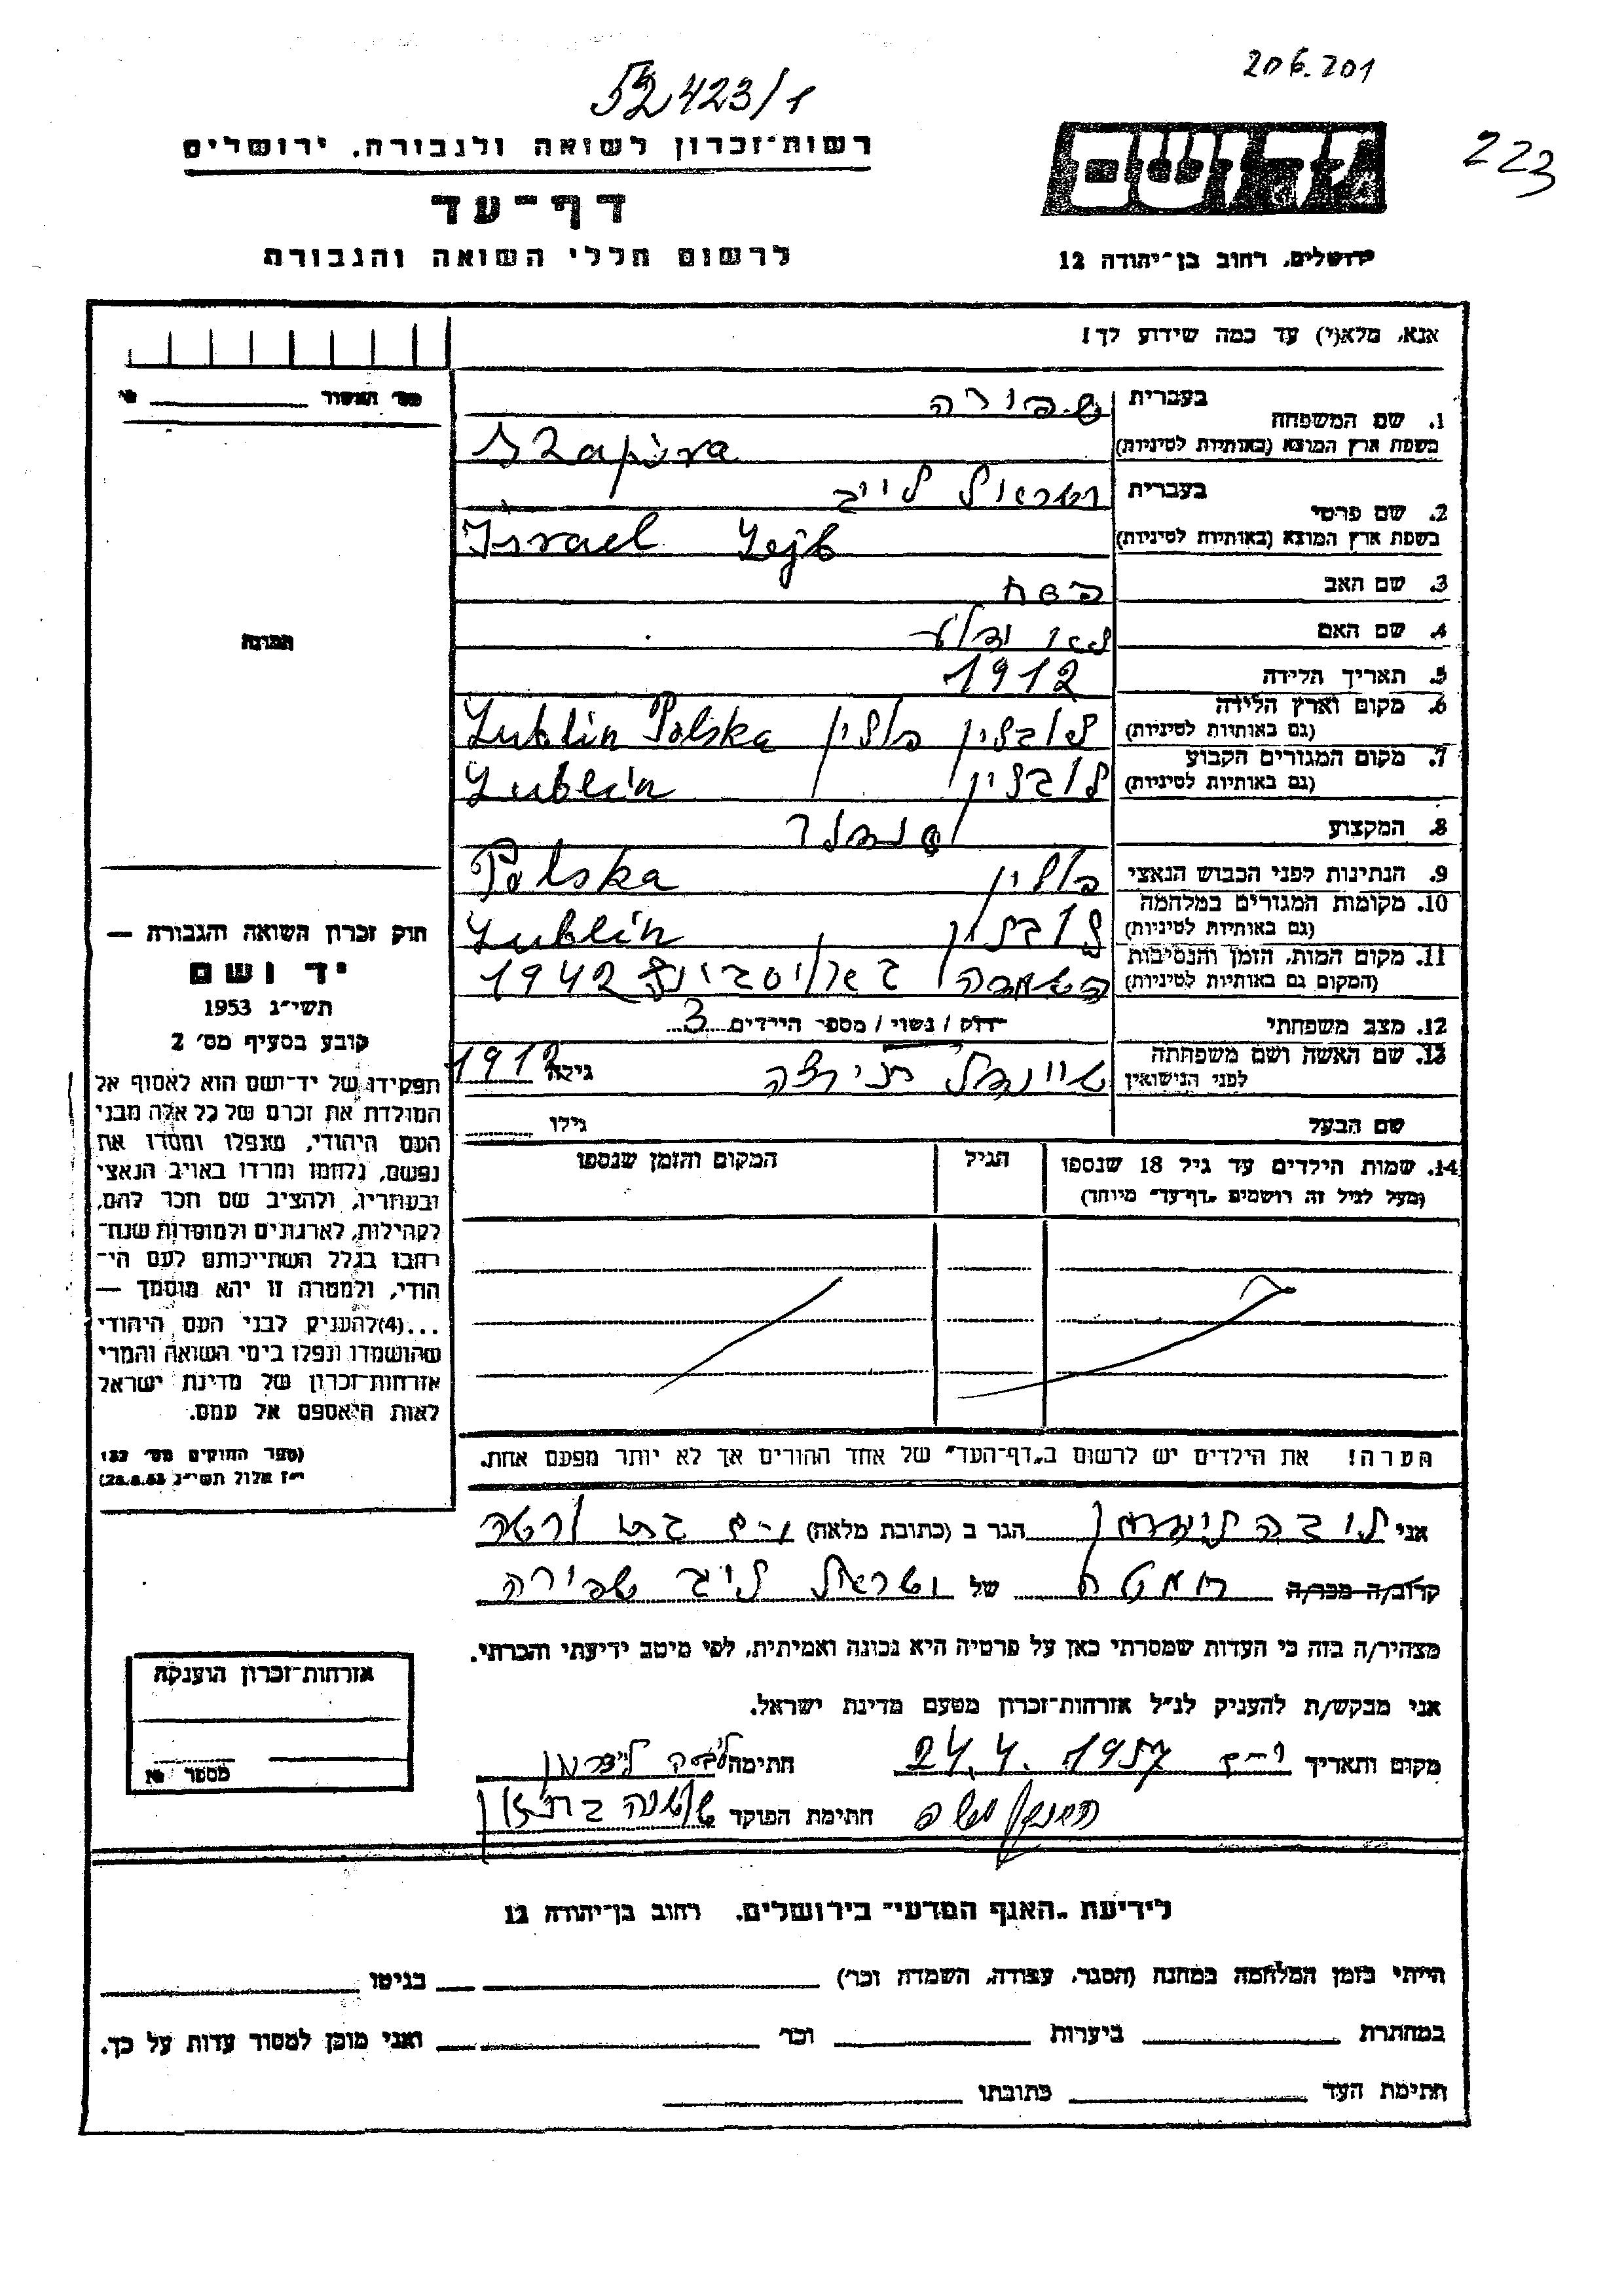 206.201
52423/1
223
רשות־זכרון לשואה ולגבורה, ירושלים
דף־עד
לרשום חללי השואה והגבורה
ידושם
ירושלים, רחוב בן־יהודה 12
אנא, מלא(י) עד כמה שידוע לך!
מס' האשור
1. שם המשפחה
בעברית שפירה
בשפת ארץ המוצא (באותיות לטיניות) Szapira
2. שם פרטי
בעברית ישראל לייב
בשפת ארץ המוצא (באותיות לטיניות) Israel Lejb
3. שם האב פסח
4. שם האם לא יודע
5. תאריך הלידה 1912
6. מקום וארץ הלידה (גם באותיות לטיניות) לובלין פולין Lublin Polska
7. מקום המגורים הקבוע (גם באותיות לטיניות) לובלין Lublin
8. המקצוע סנדלר
9. הנתינות לפני הכבוש הנאצי פולין Polska
10. מקומות המגורים במלחמה (גם באותיות לטיניות) לובלין Lublin
11. מקום המות, הזמן והנסיבות (המקום גם באותיות לטיניות) השמדה 1942
12. מצב משפחתי רווק / נשוי / מספר הילדים 3
13. שם האשה ושם משפחתה לפני הנישואין גילה 1912
שם הבעל גילו
14. שמות הילדים עד גיל 18 שנספו (מעל לגיל זה רושמים "דף־עד" מיוחד)
הגיל
המקום והזמן שנספו
הערה! את הילדים יש לרשום ב"דף־העד" של אחד ההורים אך לא יותר מפעם אחת.
תמונה
חוק זכרון השואה והגבורה —
יד ושם
תשי״ג 1953
קובע בסעיף מס' 2
תפקידו של יד־ושם הוא לאסוף אל
המולדת את זכרם של כל אלה מבני
העם היהודי, שנפלו ומסרו את
נפשם, נלחמו ומרדו באויב הנאצי
ובעוזריו, ולהציב שם וזכר להם,
לקהילות, לארגונים ולמוסדות שנח־
רבו בגלל השתייכותם לעם הי־
הודי, ולמטרה זו יהא מוסמך —
...(4)להעניק לבני העם היהודי
שהושמדו ונפלו בימי השואה והמרי
אזרחות־זכרון של מדינת ישראל
לאות היאספם אל עמם.
(ספר החוקים מס' 132
י״ז אלול תשי״ג 28.8.53)
אני הגר ב (כתובת מלאה)
קרוב/ה מכר/ה של ישראל לייב שפירה
מצהיר/ה בזה כי העדות שמסרתי כאן על פרטיה היא נכונה ואמיתית, לפי מיטב ידיעתי והכרתי.
אני מבקש/ת להעניק לנ״ל אזרחות־זכרון מטעם מדינת ישראל.
מקום ותאריך 24.4.1957 חתימה
חתימת הפוקד
אזרחות־זכרון הוענקה
מספר
לידיעת "האגף המדעי" בירושלים, רחוב בן־יהודה 12
הייתי בזמן המלחמה במחנה (הסגר, עבודה, השמדה וכו') בגיטו
במחתרת ביערות וכו' ואני מוכן למסור עדות על כך.
חתימת העד כתובתו